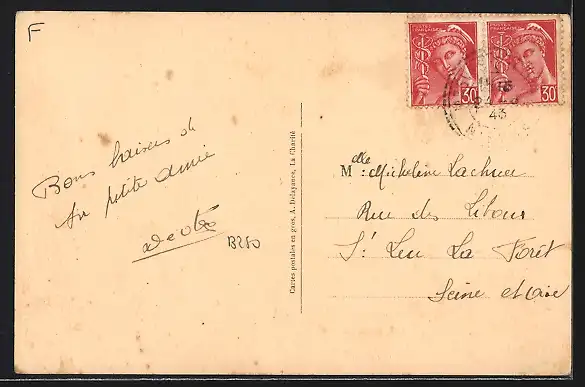 F
POSTES FRANÇAISES
30
POSTES FRANÇAISES
30
43
Bons baisers de
ta petite amie
B250
Cartes postales en gros, A. Delayance, La Charité
Melle Micheline Lachuer
Rue des Libous
St Leu La Forêt
Seine et Oise